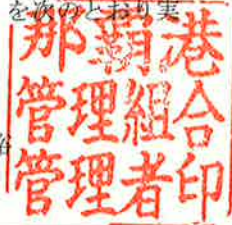 を次のとおり実
那覇港
管理組合
管理者印